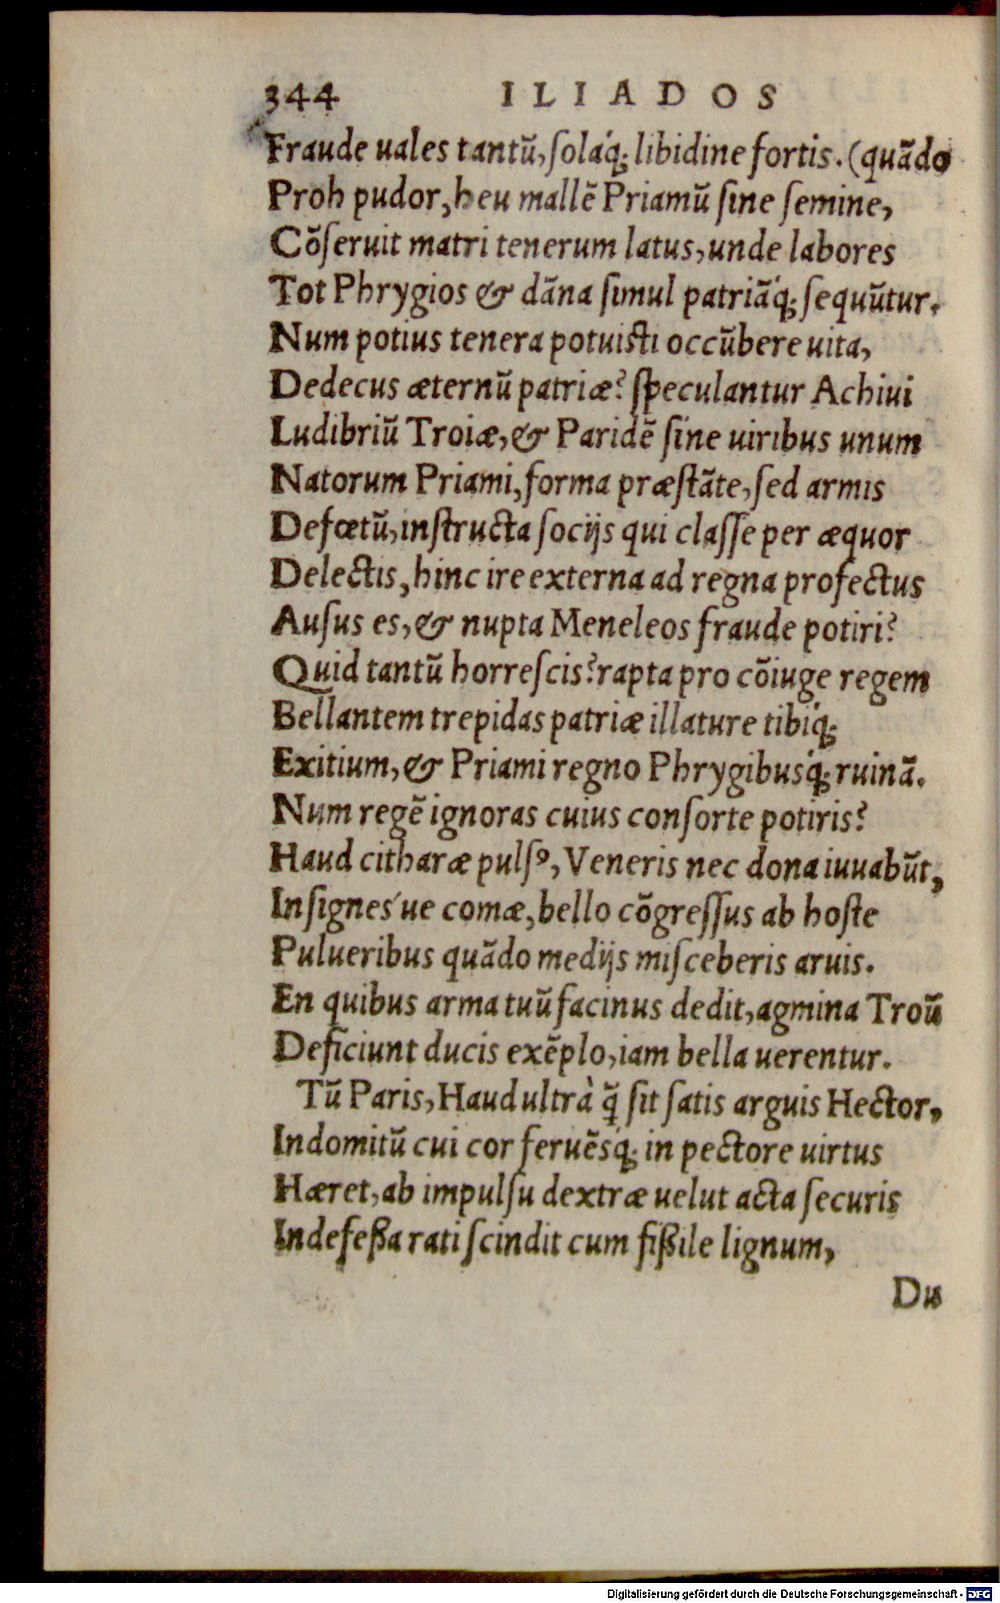 344 ILIADOS
Fraude uales tantũ, ſolaq́; libidine fortis. (quãdo
Proh pudor, heu mallẽ Priamũ ſine ſemine,
Cõſeruit matri tenerum latus, unde labores
Tot Phrygios & dãna ſimul patriãq́; ſequũtur.
Num potius tenera potuiſti occũbere uita,
Dedecus æternũ patriæ? ſpeculantur Achiui
Ludibriũ Troiæ, & Paridẽ ſine uiribus unum
Natorum Priami, forma præſtãte, ſed armis
Defœtũ, inſtructa ſocijs qui claſſe per æquor
Delectis, hinc ire externa ad regna profectus
Auſus es, & nupta Meneleos fraude potiri?
Quid tantũ horreſcis? rapta pro cõiuge regem
Bellantem trepidas patriæ illature tibiq́;
Exitium, & Priami regno Phrygibusq́; ruinã.
Num regẽ ignoras cuius conſorte potiris?
Haud citharæ pulſꝰ, Veneris nec dona iuuabũt,
Inſignes´ue comæ, bello cõgreſſus ab hoſte
Pulueribus quãdo medijs miſceberis aruis.
En quibus arma tuũ facinus dedit, agmina Troũ
Deficiunt ducis exẽplo, iam bella uerentur.
Tũ Paris, Haud ultrà q̃ ſit ſatis arguis Hector,
Indomitũ cui cor feruẽsq́; in pectore uirtus
Hæret, ab impulſu dextræ uelut acta ſecuris
Indefeßa rati ſcindit cum fißile lignum,
Du
Digitalisierung gefördert durch die Deutsche Forschungsgemeinschaft - DFG